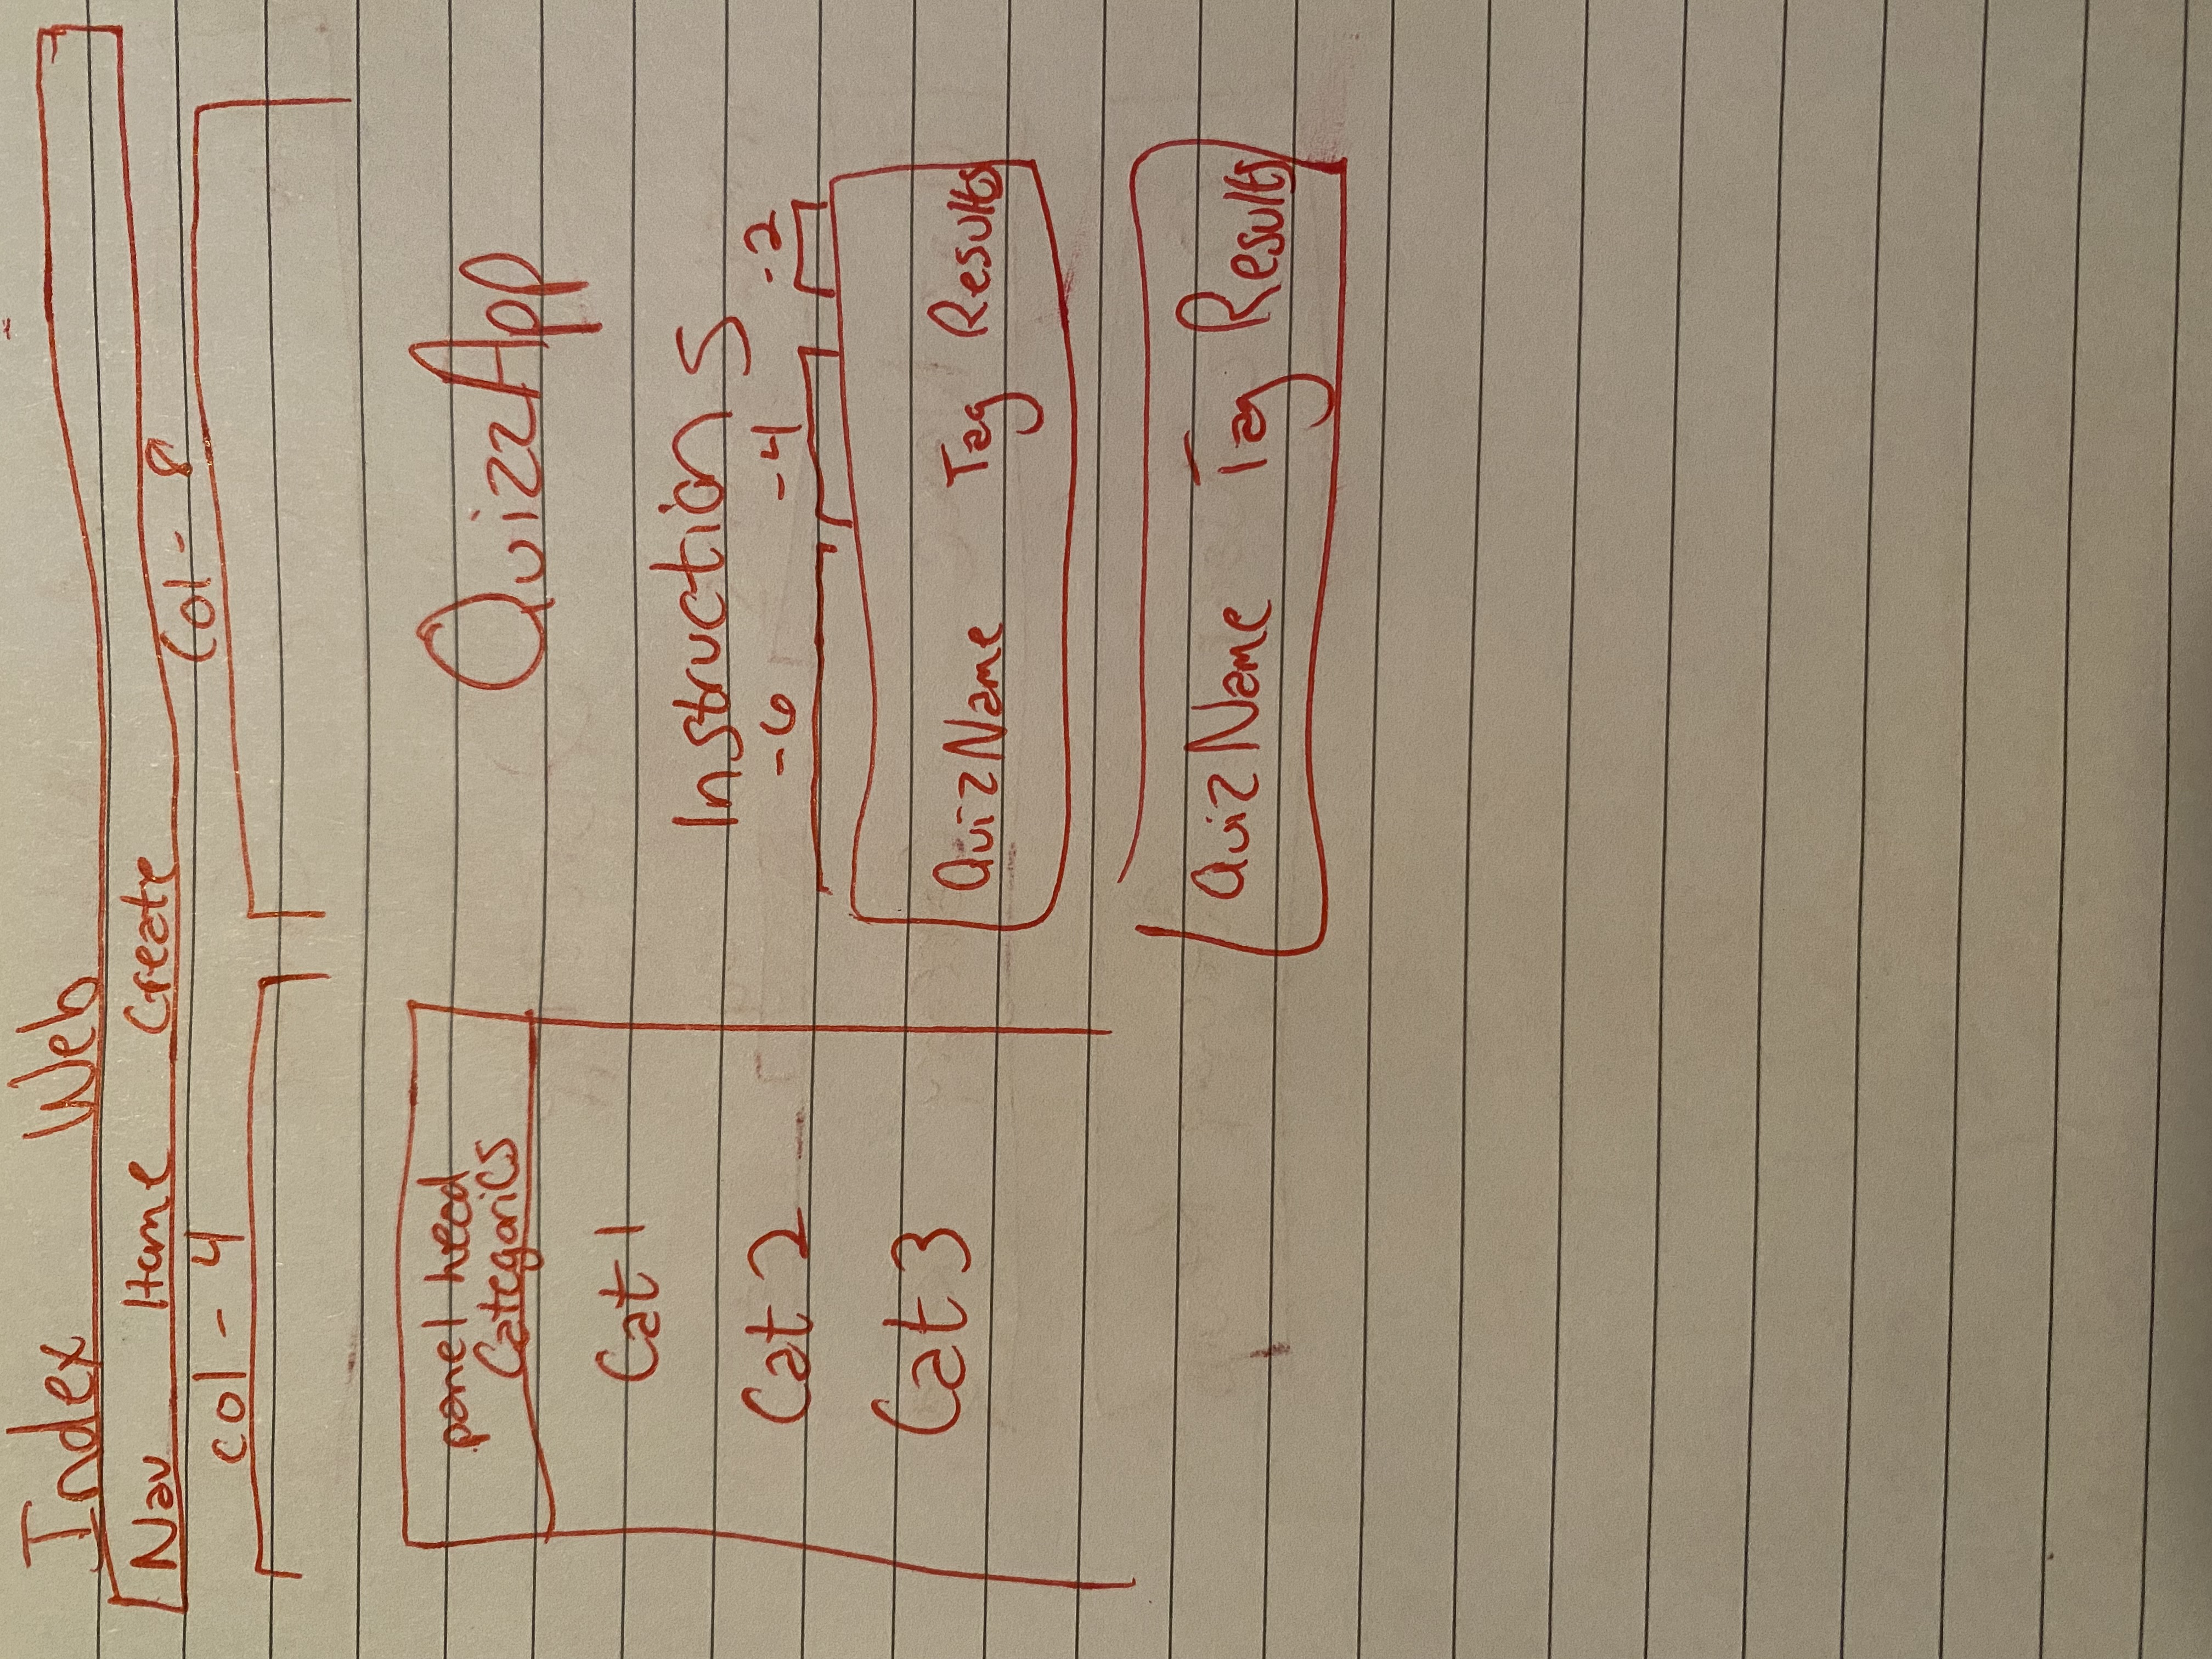 Index Web
Nav Home Create
col - 4
Col - 8
panel head
Categories
Cat 1
Cat 2
Cat 3
QuizzApp
Instructions
-6 -4 -2
QuizName Tag Results
QuizName Tag Results